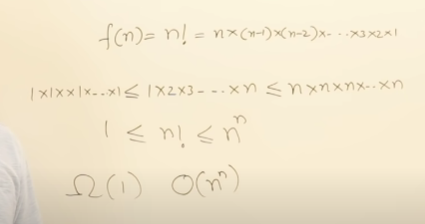 f(n) = n! = n×(n-1)×(n-2)×- - -×3×2×1
1×1××1×- -×1 ≤ 1×2×3- - -×n ≤ n×n×n×- -×n
1 ≤ n! ≤ nⁿ
Ω(1) O(nⁿ)